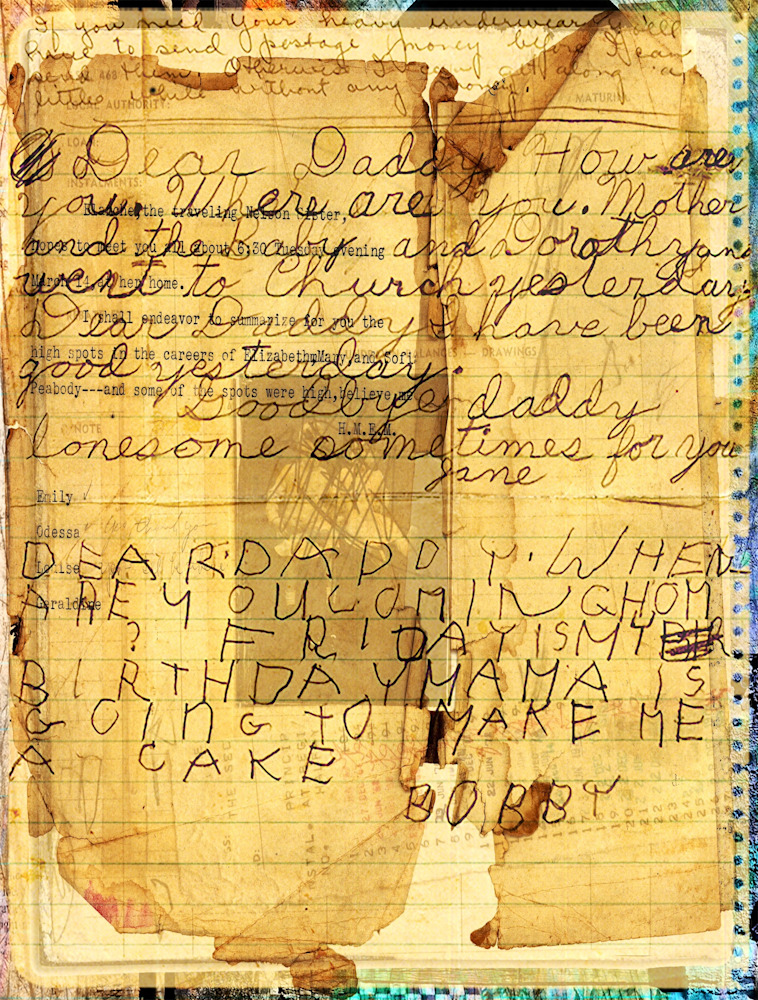 If you need your heavy underwear you'll
have to send postage money before I can
send them. Otherwise I can get along a
little while without any money.
AUTHORITY:
MATURI
LOAN:
INSTALMENTS:
Dear Daddy How are
you. Where are you. Mother
and the baby and Dorothy and I
went to Church yesterday.
Dear Daddy I have been
good yesterday.
Goodbye daddy
lonesome sometimes for you
Jane
Blanche, the traveling Nelson sister,
hopes to meet you all about 6:30 Tuesday evening
March 14, at her home.
I shall endeavor to summarize for you the
high spots in the careers of Elizabeth, Mary, and Sofi
Peabody---and some of the spots were high, believe me
H.M.E.M.
LANCES — DRAWINGS
NOTE
Emily
Odessa
Louise
Geraldine
DEAR DADDY. WHEN
ARE YOU COMING HOM
? FRIDAY IS MY BIR
BIRTHDAY MAMA IS
GOING TO MAKE ME
A CAKE
BOBBY
THE SED
PRINCIP
INSTAL.
NO.